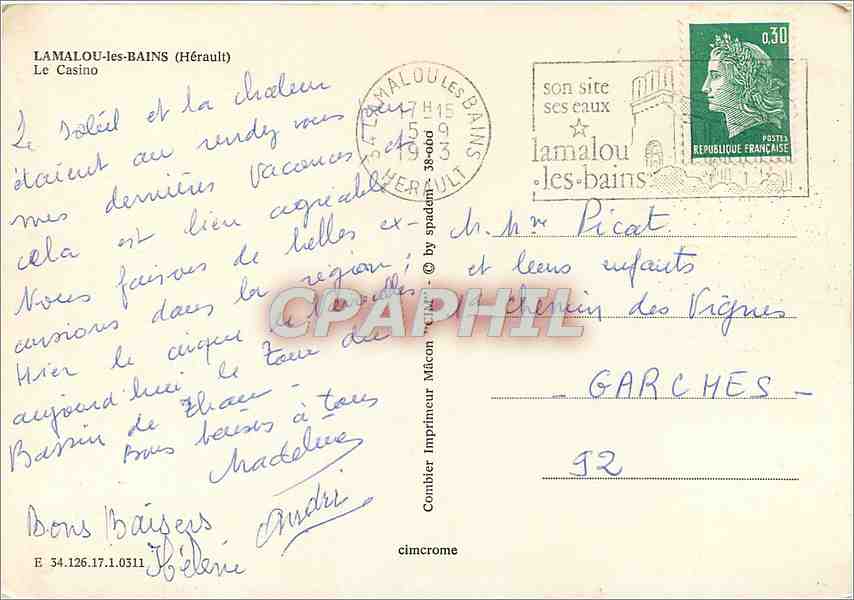 LAMALOU-les-BAINS (Hérault)
Le Casino
Le soleil et la chaleur
étaient au rendez vous pour
mes dernières vacances et
cela est bien agréable
Nous faisons de belles ex-
cursions dans la région ;
Hier le cirque de Navacelles
aujourd'hui le Tour du
Bassin de Thau -
Bons baisers à tous
Madeleine
André
Bons Baisers
Hélène
E 34.126.17.1.0311
Combier Imprimeur Mâcon "CIM" - © by spadem - 38-000
cimcrome
34 LAMALOU LES BAINS
17H15
5-9
1973
HERAULT
son site
ses eaux
lamalou
-les-bains
0,30
POSTES
REPUBLIQUE FRANÇAISE
M. Mme Picat
et leurs enfants
Chemin des Vignes
- GARCHES -
92
CPAPHIL